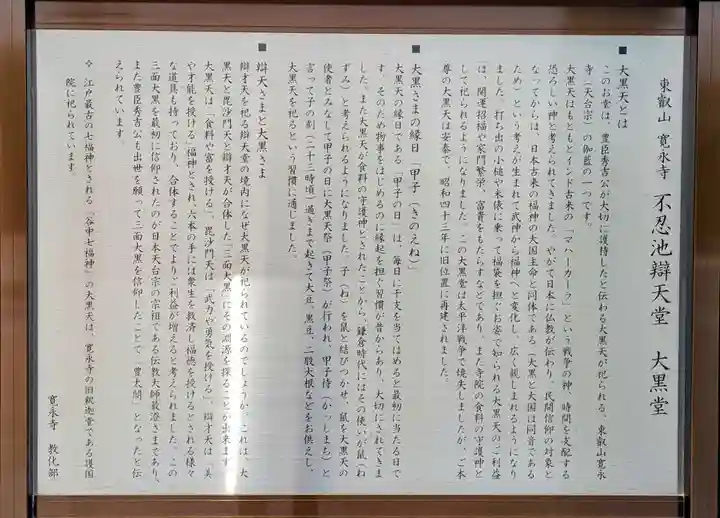 東叡山 寛永寺 不忍池辯天堂 大黒堂
■大黒天とは
このお堂は、豊臣秀吉公が大切に護持したと伝わる大黒天が祀られる、東叡山寛永
寺（天台宗）の伽藍の一つです。
大黒天はもともとインド古来の「マハーカーラ」という戦争の神、時間を支配する
恐ろしい神と考えられてきました。やがて日本に仏教が伝わり、民間信仰の対象と
なってからは、日本古来の福神の大国主命と同体である（大黒と大国は同音である
ため）という考えが生まれて武神から福神へと変化し、広く親しまれるようになり
ました。打ち出の小槌や米俵に乗って福袋を担ぐお姿で知られる大黒天のご利益
は、開運招福や家門繁栄、富貴をもたらすなどであり、また寺院の食料の守護神と
して祀られるようになりました。この大黒堂は太平洋戦争で焼失しましたが、ご本
尊の大黒天は安泰で、昭和四十三年に旧位置に再建されました。
■大黒さまの縁日「甲子（きのえね）」
大黒天の縁日である「甲子の日」は、毎日に干支を当てはめると最初に当たる日で
す。そのため物事をはじめるのに縁起を担ぐ習慣が昔からあり、大切にされてきま
した。また大黒天が食料の守護神とされたことから、鎌倉時代にはその使いが鼠（ね
ずみ）と考えられるようになりました。子（ね）を鼠と結びつかせ、鼠を大黒天の
使者とみなして甲子の日に大黒天祭（甲子祭）が行われ、甲子待（かっしまち）と
言って子の刻（二十三時頃）過ぎまで起きて大豆、黒豆、二股大根などをお供えし、
大黒天を祀るという習慣に通じました。
■辯天さまと大黒さま
辯才天を祀る辯天堂の境内になぜ大黒天が祀られているのでしょうか。これは、大
黒天と毘沙門天と辯才天が合体した「三面大黒」にその淵源を探ることが出来ます。
大黒天は「食料や富を授ける」、毘沙門天は「武力や勇気を授ける」、辯才天は「美
や才能を授ける」福神とされ、六本の手には衆生を救済し福徳を授けるとされる様々
な道具も持っており、合体することでよりご利益が増えると考えられました。この
三面大黒を最初に信仰されたのが日本天台宗の宗祖である伝教大師最澄さまであり、
また豊臣秀吉公も出世を願って三面大黒を信仰したことで「豊太閤」となったと伝
えられています。
❖ 江戸最古の七福神とされる「谷中七福神」の大黒天は、寛永寺の旧釈迦堂である護国
院に祀られています。
寛永寺 教化部